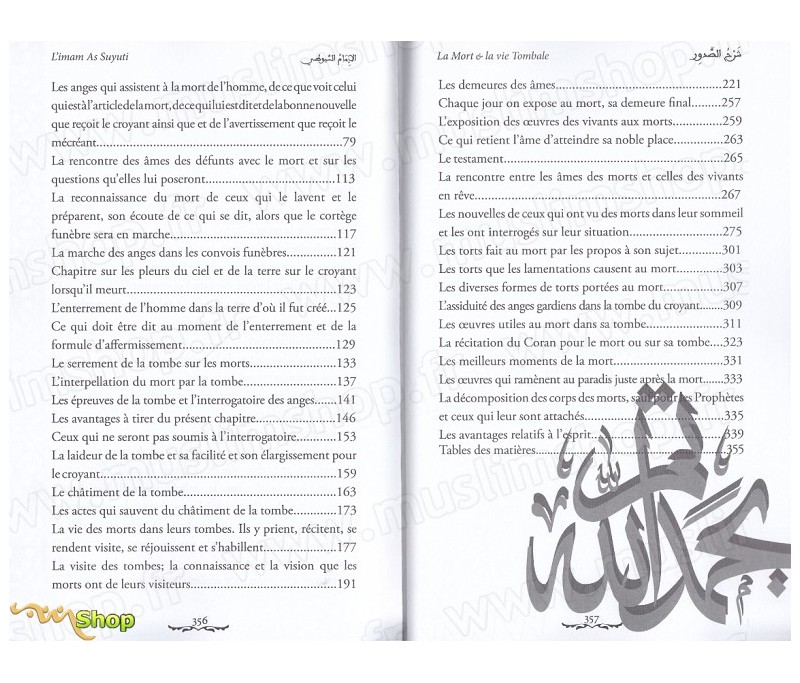 L'imam As Suyuti
الإمام السيوطي
Les anges qui assistent à la mort de l'homme, de ce que voit celui
qui est à l'article de la mort, de ce qui lui est dit et de la bonne nouvelle
que reçoit le croyant ainsi que et de l'avertissement que reçoit le
mécréant............79
La rencontre des âmes des défunts avec le mort et sur les
questions qu'elles lui poseront............113
La reconnaissance du mort de ceux qui le lavent et le
préparent, son écoute de ce qui se dit, alors que le cortège
funèbre sera en marche............117
La marche des anges dans les convois funèbres............121
Chapitre sur les pleurs du ciel et de la terre sur le croyant
lorsqu'il meurt............123
L'enterrement de l'homme dans la terre d'où il fut créé...125
Ce qui doit être dit au moment de l'enterrement et de la
formule d'affermissement............129
Le serrement de la tombe sur les morts............133
L'interpellation du mort par la tombe............137
Les épreuves de la tombe et l'interrogatoire des anges......141
Les avantages à tirer du présent chapitre............146
Ceux qui ne seront pas soumis à l'interrogatoire............153
La laideur de la tombe et sa facilité et son élargissement pour
le croyant............159
Le châtiment de la tombe............163
Les actes qui sauvent du châtiment de la tombe............173
La vie des morts dans leurs tombes. Ils y prient, récitent, se
rendent visite, se réjouissent et s'habillent............177
La visite des tombes; la connaissance et la vision que les
morts ont de leurs visiteurs............191
356
Shop
La Mort & la vie Tombale
شرح الصدور
Les demeures des âmes............221
Chaque jour on expose au mort, sa demeure final.........257
L'exposition des œuvres des vivants aux morts............259
Ce qui retient l'âme d'atteindre sa noble place............263
Le testament............265
La rencontre entre les âmes des morts et celles des vivants
en rêve............267
Les nouvelles de ceux qui ont vu des morts dans leur sommeil
et les ont interrogés sur leur situation............275
Les torts fait au mort par les propos à son sujet............301
Les torts que les lamentations causent au mort............303
Les diverses formes de torts portées au mort............307
L'assiduité des anges gardiens dans la tombe du croyant......309
Les œuvres utiles au mort dans sa tombe............311
La récitation du Coran pour le mort ou sur sa tombe....323
Les meilleurs moments de la mort............331
Les œuvres qui ramènent au paradis juste après la mort......333
La décomposition des corps des morts, sauf pour les Prophètes
et ceux qui leur sont attachés............335
Les avantages relatifs à l'esprit............339
Tables des matières............355
بحمد الله تعالى
357
www.muslimshop.fr